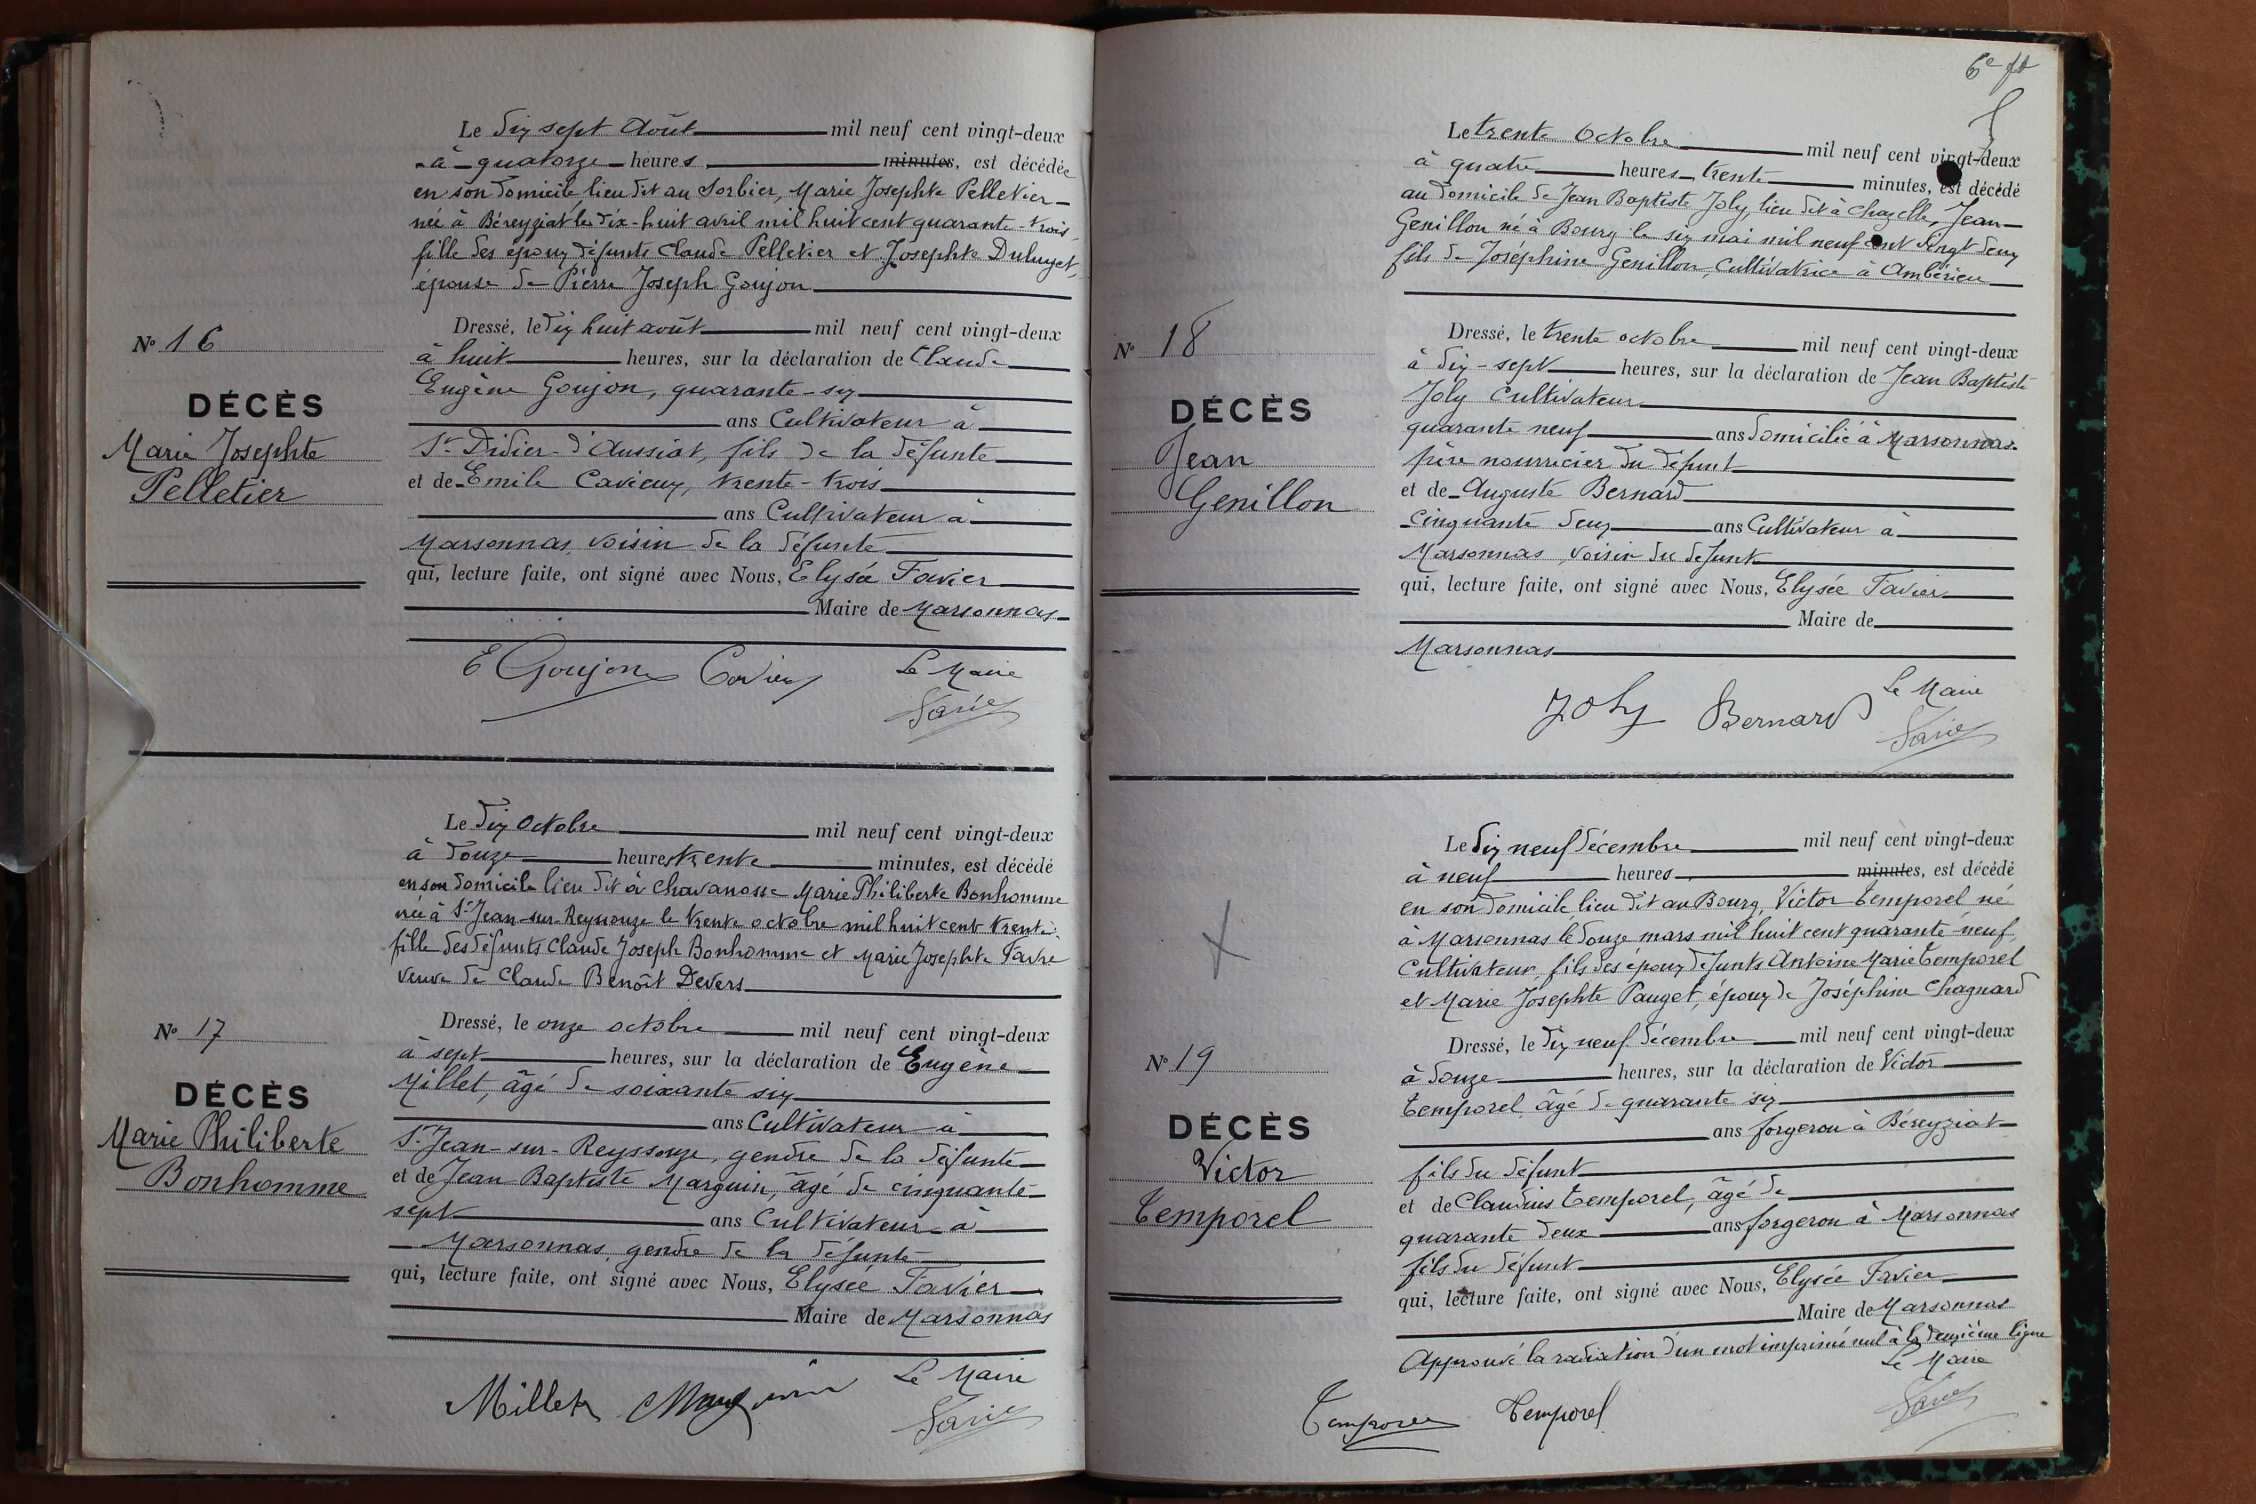 Le dix sept Août mil neuf cent vingt-deux
à quatorze heures minutes, est décédée
en son domicile, lieu dit au Sorbier, Marie Josephte Pelletier
née à Béreyziat le dix-huit avril mil huit cent quarante-trois,
fille des époux défunts Claude Pelletier et Josephte
épouse de Pierre Joseph Goujon
Dressé, le dix huit août mil neuf cent vingt-deux
N° 16
à huit heures, sur la déclaration de Claude
Eugène Goujon, quarante-six
DÉCÈS
ans Cultivateur à
Marie Josephte
St Didier-d'Aussiat, fils de la défunte
Pelletier
et de Emile Cavieux, trente-trois
ans Cultivateur à
Marsonnas, voisin de la défunte
qui, lecture faite, ont signé avec Nous, Elysée Favier
Maire de Marsonnas
E Goujon Cavieux Le Maire
Favier
Le dix Octobre mil neuf cent vingt-deux
à douze heures trente minutes, est décédé
en son domicile lieu dit à Chavanosse Marie Philiberte Bonhomme
née à St Jean-sur-Reyssouze le trente octobre mil huit cent trente,
fille des défunts Claude Joseph Bonhomme et Marie Josephte Favre
veuve de Claude Benoît Devers
Dressé, le onze octobre mil neuf cent vingt-deux
N° 17
à sept heures, sur la déclaration de Eugène
Millet, âgé de soixante six
DÉCÈS
ans Cultivateur à
Marie Philiberte
St Jean-sur-Reyssouze, gendre de la défunte
Bonhomme
et de Jean Baptiste Marguin, âgé de cinquante
sept ans Cultivateur à
Marsonnas, gendre de la défunte
qui, lecture faite, ont signé avec Nous, Elysée Favier
Maire de Marsonnas
Millet Marguin Le Maire
Favier
6e ft
Le trente Octobre mil neuf cent vingt-deux
à quatre heures trente minutes, est décédé
au domicile de Jean Baptiste Joly, lieu dit à Chazelle, Jean
Genillon né à Bourg le six mai mil neuf cent vingt deux
fils de Joséphine Genillon, Cultivatrice à Ambérieu
Dressé, le trente octobre mil neuf cent vingt-deux
N° 18
à dix-sept heures, sur la déclaration de Jean Baptiste
Joly Cultivateur
DÉCÈS
quarante neuf ans domicilié à Marsonnas
Jean
père nourricier du défunt
Genillon
et de Auguste Bernard
cinquante deux ans Cultivateur à
Marsonnas, voisin du defunt
qui, lecture faite, ont signé avec Nous, Elysée Favier
Maire de
Marsonnas
Joly Bernard Le Maire
Favier
Le dix neuf décembre mil neuf cent vingt-deux
à neuf heures minutes, est décédé
en son domicile lieu dit au Bourg, Victor Temporel né
à Marsonnas le douze mars mil huit cent quarante-neuf,
Cultivateur, fils des époux défunts Antoine Marie Temporel
et Marie Josephte Pauget, époux de Joséphine Chagnard
Dressé, le dix neuf décembre mil neuf cent vingt-deux
N° 19
à douze heures, sur la déclaration de Victor
Temporel âgé de quarante six
DÉCÈS
ans forgeron à Béreyziat
Victor
fils du défunt
Temporel
et de Claudius Temporel, âgé de
quarante deux ans forgeron à Marsonnas
fils du défunt
qui, lecture faite, ont signé avec Nous, Elysée Favier
Maire de Marsonnas
Approuvé la radiation d'un mot imprimé nul à la deuxième ligne
Le Maire
Temporel Temporel Favier